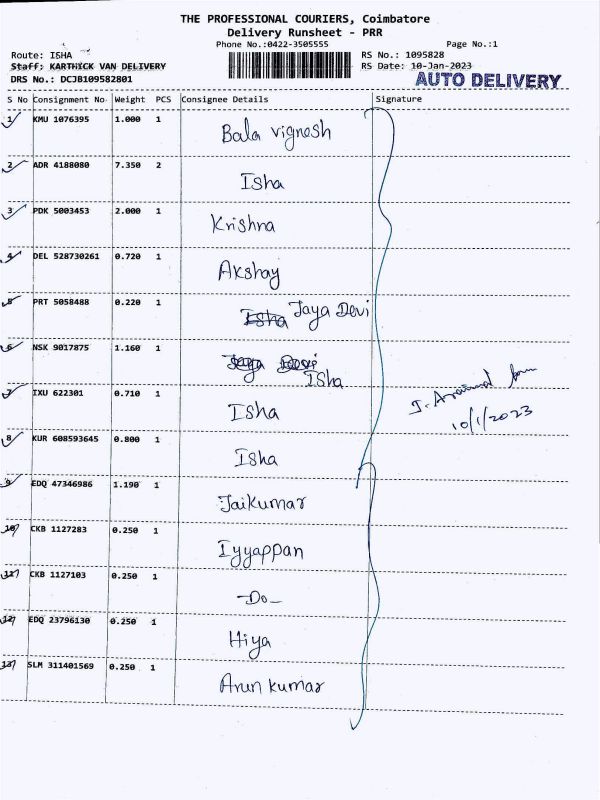 THE PROFESSIONAL COURIERS, Coimbatore
Delivery Runsheet - PRR
Phone No.:0422-3505555 Page No.:1
Route: ISHA RS No.: 1095828
Staff: KARTHICK VAN DELIVERY RS Date: 10-Jan-2023
DRS No.: DCJB109582801 AUTO DELIVERY
S No Consignment No Weight PCS Consignee Details Signature
1 KMU 1076395 1.000 1 Bala vignesh
2 ADR 4188080 7.350 2 Isha
3 PDK 5003453 2.000 1 Krishna
4 DEL 528730261 0.720 1 Akshay
5 PRT 5058488 0.220 1 Isha Jaya Devi
6 NSK 9017875 1.160 1 Jaya Devi Isha
7 IXU 622301 0.710 1 Isha
10/1/2023
8 KUR 608593645 0.800 1 Isha
9 EDQ 47346986 1.190 1 Jaikumar
10 CKB 1127283 0.250 1 Iyyappan
11 CKB 1127103 0.250 1 -Do-
12 EDQ 23796130 0.250 1 Hiya
13 SLM 311401569 0.250 1 Arun kumar